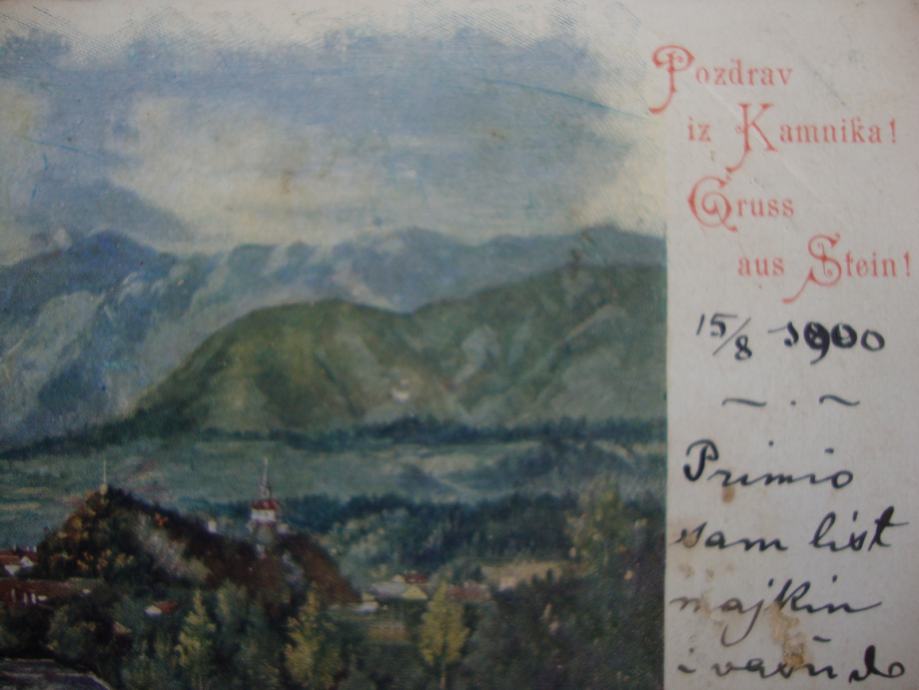 Pozdrav
iz Kamnika!
Gruss
aus Stein!
15/8 1900
Primio
sam list
majkin
i